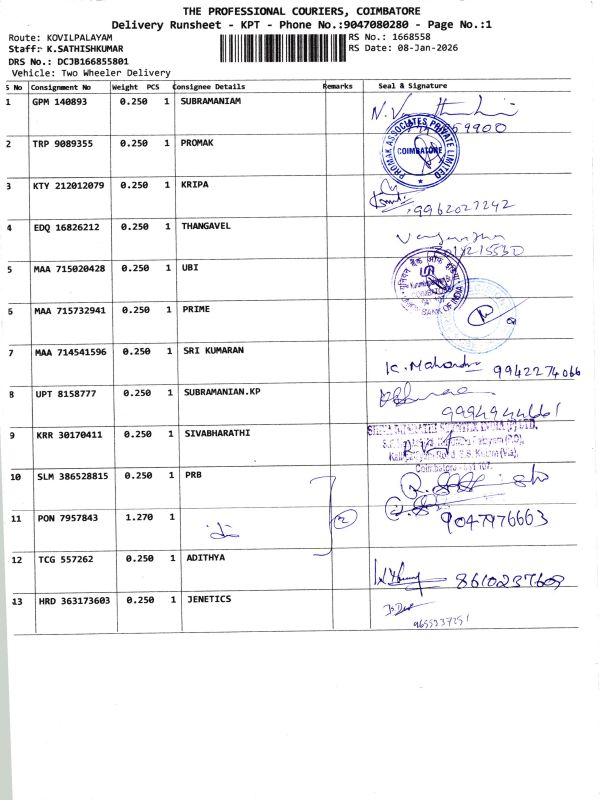 THE PROFESSIONAL COURIERS, COIMBATORE
Delivery Runsheet - KPT - Phone No.:9047080280 - Page No.:1
Route: KOVILPALAYAM RS No.: 1668558
Staff: K.SATHISHKUMAR RS Date: 08-Jan-2026
DRS No.: DCJB166855801
Vehicle: Two Wheeler Delivery
S No Consignment No Weight PCS Consignee Details Remarks Seal & Signature
1 GPM 140893 0.250 1 SUBRAMANIAM
2 TRP 9089355 0.250 1 PROMAK
PROMAK ASSOCIATES PRIVATE LIMITED
COIMBATORE
3 KTY 212012079 0.250 1 KRIPA
9962027242
4 EDQ 16826212 0.250 1 THANGAVEL
5 MAA 715020428 0.250 1 UBI
यूनियन बैंक ऑफ इंडिया
UNION BANK OF INDIA
6 MAA 715732941 0.250 1 PRIME
7 MAA 714541596 0.250 1 SRI KUMARAN
9942274066
8 UPT 8158777 0.250 1 SUBRAMANIAN.KP
9994944661
9 KRR 30170411 0.250 1 SIVABHARATHI
INDIA (P) LTD.
Coimbatore - 641 107.
10 SLM 386528815 0.250 1 PRB
11 PON 7957843 1.270 1
2
9047976663
12 TCG 557262 0.250 1 ADITHYA
8610237609
13 HRD 363173603 0.250 1 JENETICS